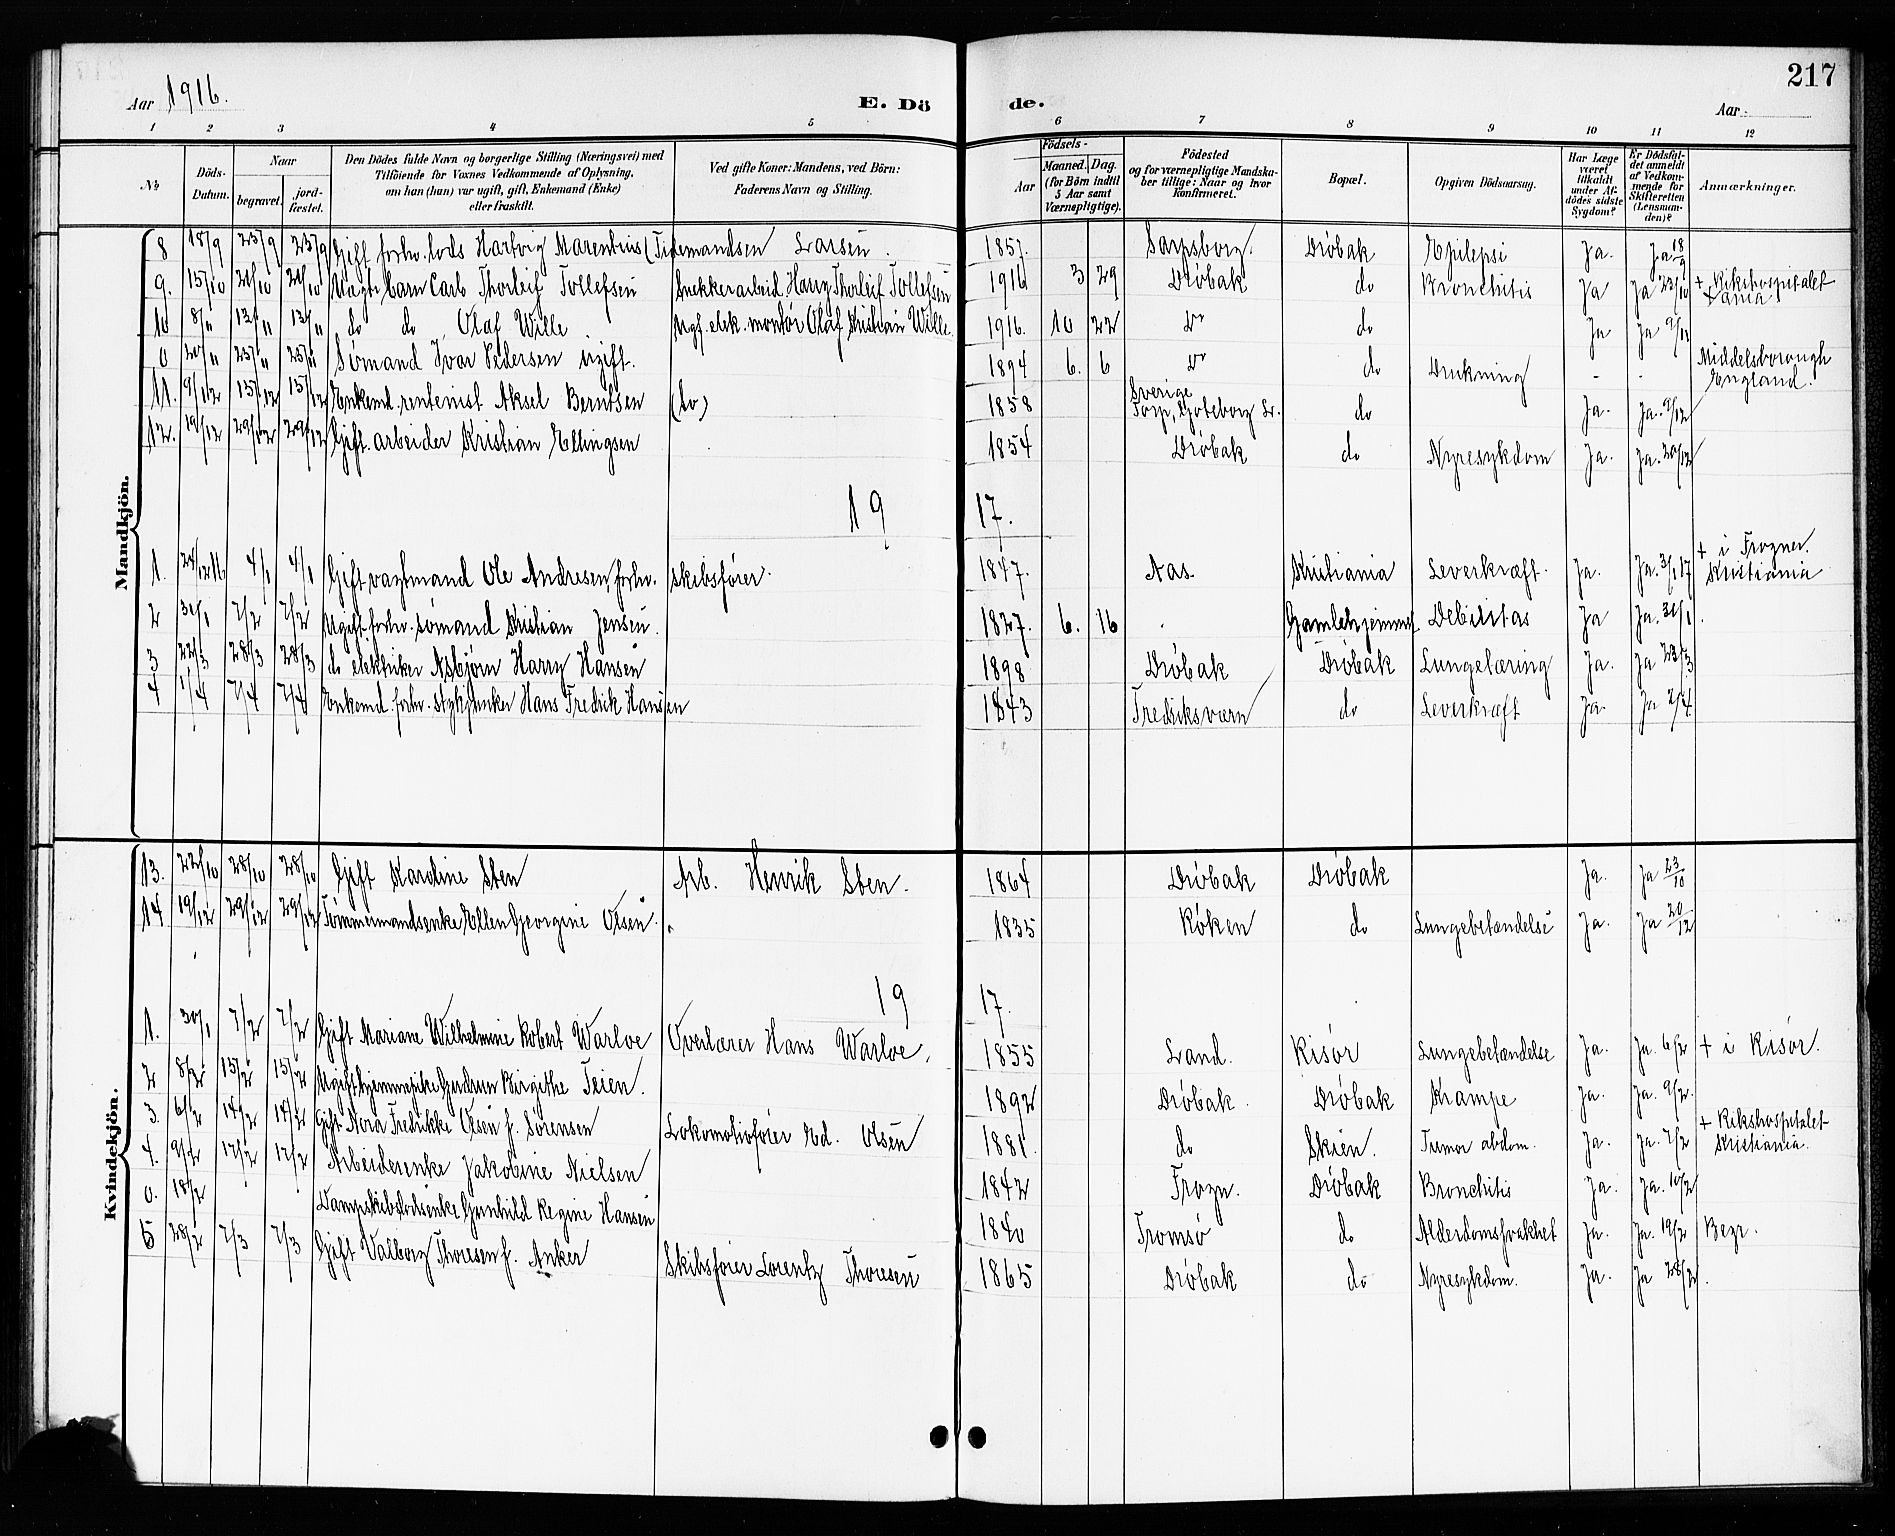 217
Aar 1916.
E. Dö de.
Aar
1 2 3 4 5 6 7 8 9 10 11 12
No.
Döds-Datum.
Naar begravet. jordfæstet.
Den Dödes fulde Navn og borgerlige Stilling (Næringsvei) med Tilföiende for Voxnes Vedkommende af Oplysning, om han (hun) var ugift, gift, Enkemand (Enke) eller fraskilt.
Ved gifte Koner: Mandens, ved Börn: Faderens Navn og Stilling.
Födsels-
Aar Maaned. Dag. (for Börn indtil 5 Aar samt Værnepligtige).
Födested og for værnepligtige Mandskaber tillige: Naar og hvor Konfirmeret.
Bopæl.
Opgiven Dödsaarsag.
Har Læge været tilkaldt under Afdödes sidste Sygdom?
Er Dödsfaldet anmeldt af Vedkommende for Skifteretten (Lensmanden)?
Anmærkninger.
Mandkjön.
8 18/9 23/9 23/9 Gift forhv. lods Hartvig Marentius (Tidemandsen Larsen. 1857. Sarpsborg. Drøbak Epilepsi Ja. Ja 18/9
9. 15/10 21/10 21/10 barn Carl Thorleif Tollefsen Snekkerarbeid. Harry Thorleif Tollefsen 1916 3 29 Drøbak do Bronchitis Ja Ja 23/10 + Rikshospitalet Kr.ania
10 8/11 13/11 13/11 do do Olaf Wille Ugf. elek. montør Olaf Kristian Wille. 1916. 10 22 do do Ja Ja 9/11
0 20/11 25/11 25/11 Sømand Ivar Pedersen ugift. 1894 6. 6 do do Drukning - - Middelsborough England.
11. 9/12 15/12 15/12 Enkemd. rentenist Aksel Berntsen (do) 1858 Sverige Torp, Göteborg L. do Ja. Ja. 9/12
12. 19/12 29/12 29/12 Gift. arbeider Kristian Ellingsen 1854 Drøbak do Nyresykdom Ja. Ja. 20/12
19 17.
1. 24/12 16 4/1 4/1 Gift vagtmand Ole Andresen, forhv. skibsfører. 1847. Aas. Kristiania Leverkræft. Ja. Ja. 3/1 17 + i Frogner. Kristiania
2 31/1 7/2 7/2 Ugift forhv. sømand Kristian Jensen. 1827. 6. 16 Gamlehjemmet Debilitas Ja Ja. 31/1
3 22/3 28/3 28/3 do elektriker Asbjørn Harry Hansen 1898 Drøbak Drøbak Lungetæring Ja. Ja 23/3
4 1/4 7/4 7/4 Enkemd. forhv. stykjunker Hans Fredrik Hansen 1843 Fredriksværn do Leverkræft Ja. Ja 2/4
Kvindekjön.
13. 22/10 28/10 28/10 Gift Karoline Sten Arb. Henrik Sten. 1864 Drøbak Drøbak Ja. Ja 23/10
14 19/12 29/12 29/12 Tømmermandsenke Ellen Georgine Olsen. 1835 Røken do Lungebetændelse Ja. Ja 20/12
19 17.
1. 30/1 7/2 7/2 Gift Mariane Wilhelmine Robert Warloe Overlærer Hans Warloe. 1855 Land. Risør Lungebetændelse Ja. Ja. 6/2 + i Risør.
2 8/2 15/2 15/2 Ugift hjemmepike Gudrun Birgithe Teien. 1892 Drøbak. Drøbak Krampe Ja. Ja. 9/2.
3. 6/2 14/2 14/2 Gift Nora Fredrikke Olsen f. Sørensen Lokomotivfører Ed. Olsen 1881. do Skien. Tumor abdom. Ja. Ja. 7/2 + Rikshospitalet Kristiania.
4. 9/2 17/2 17/2 Arbeiderenke Jakobine Nielsen 1842 Frogn. Drøbak Bronchitis Ja. Ja. 10/2
0. 18/2 Dampskibslodsenke Gunhild Regine Hansen 1840 Tromsø do Alderdomssvakhet Ja. Ja. 19/2 Begr.
5 28/2 7/3 7/3 Gift Valborg Thoresen f. Anker Skibsfører Lorentz Thoresen 1865 Drøbak do Nyresykdom. Ja. Ja 28/2